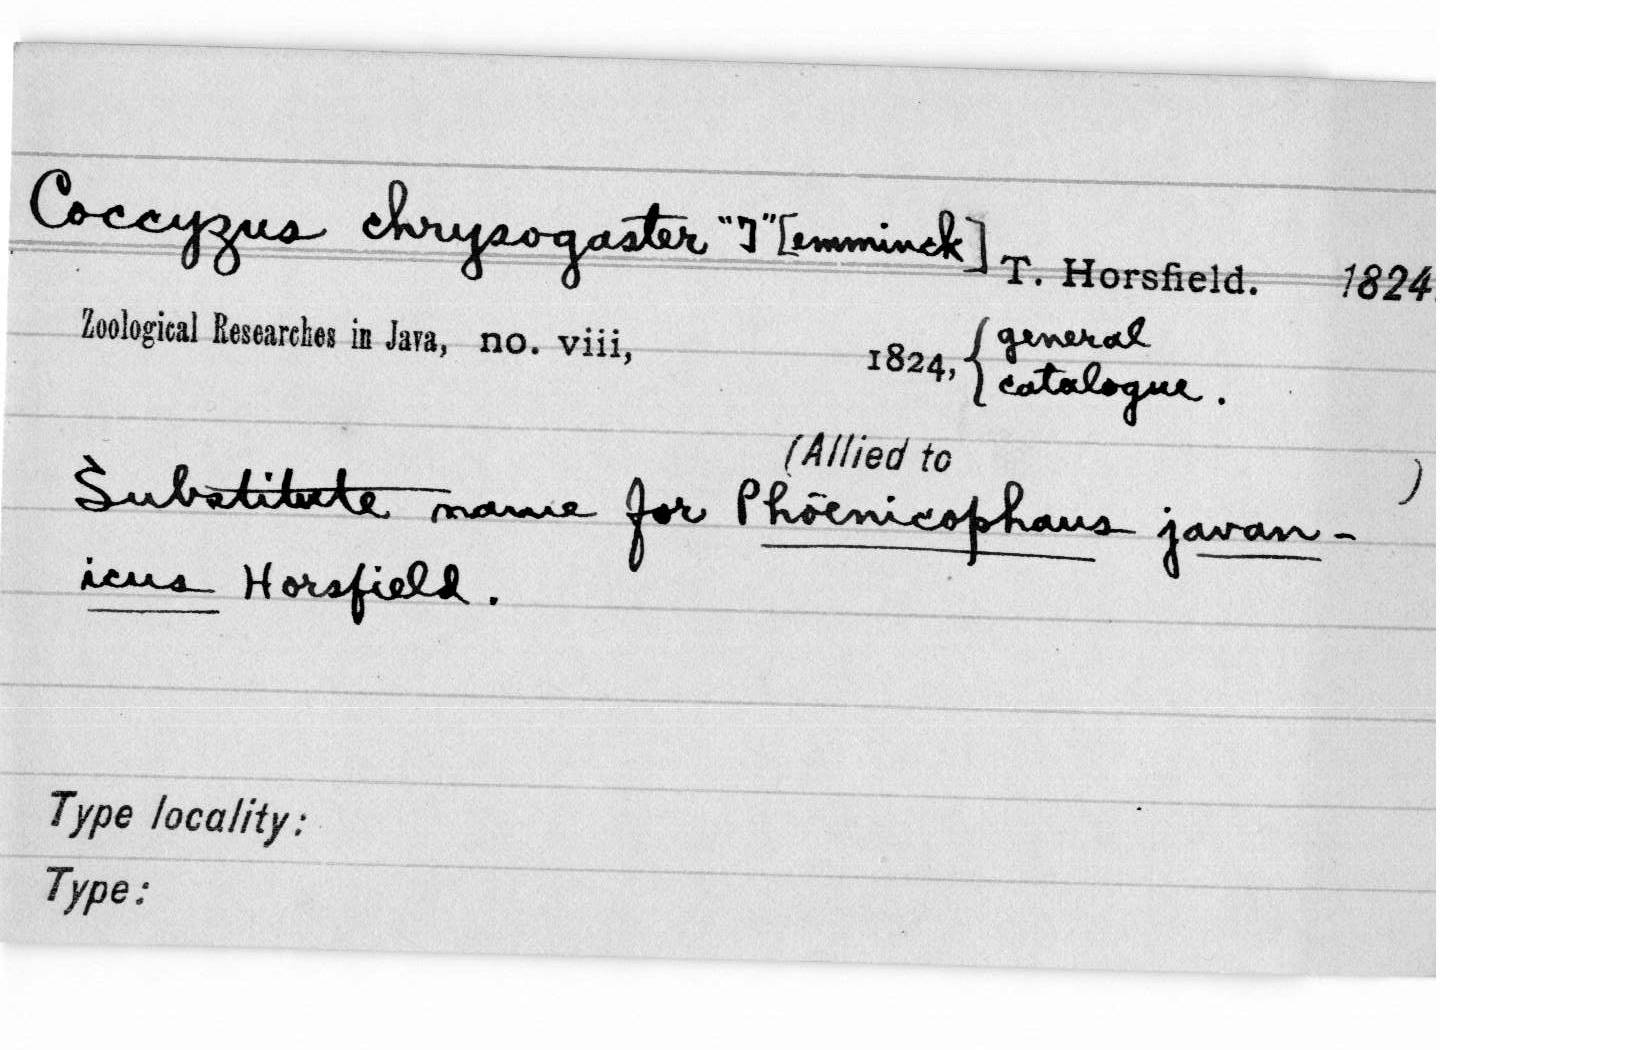 Coccyzus chrysogaster "T" [emminck] T. Horsfield. 1824.
Zoological Researches in Java, no. viii, 1824, { general
catalogue.
(Allied to )
Substitute name for Phöenicophaus javan-
icus Horsfield.
Type locality:
Type: